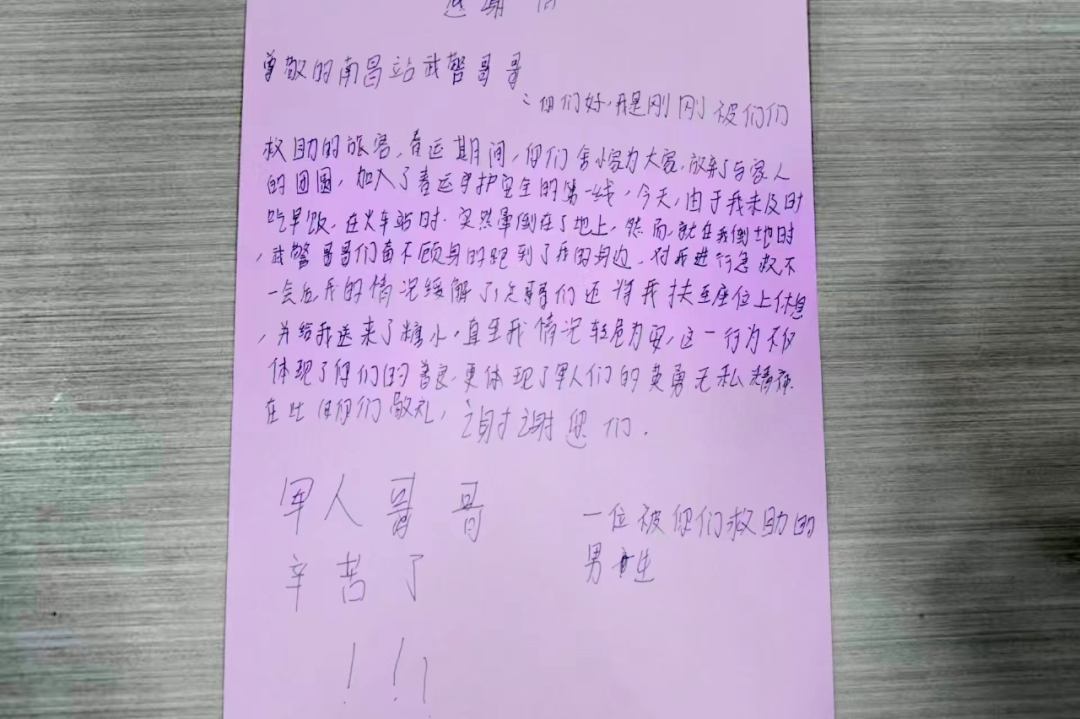 感谢信
尊敬的南昌站武警哥哥
:你们好,我是刚刚被你们
救助的旅客,春运期间,你们舍小家为大家,放弃了与家人
的团圆,加入了春运守护安全的第一线,今天,由于我未及时
吃早饭,在火车站时,突然晕倒在了地上,然而,就在我倒地时
,武警哥哥们奋不顾身的跑到了我的身边,对我进行急救不
一会后,我的情况缓解了,兵哥们还将我扶至座位上休息
,并给我送来了糖水,直至我情况转危为安,这一行为不仅
体现了你们的善良,更体现了军人们的英勇无私精神
在此向你们敬礼,谢谢您们.
军人哥哥
辛苦了
!!!
一位被你们救助的
男生